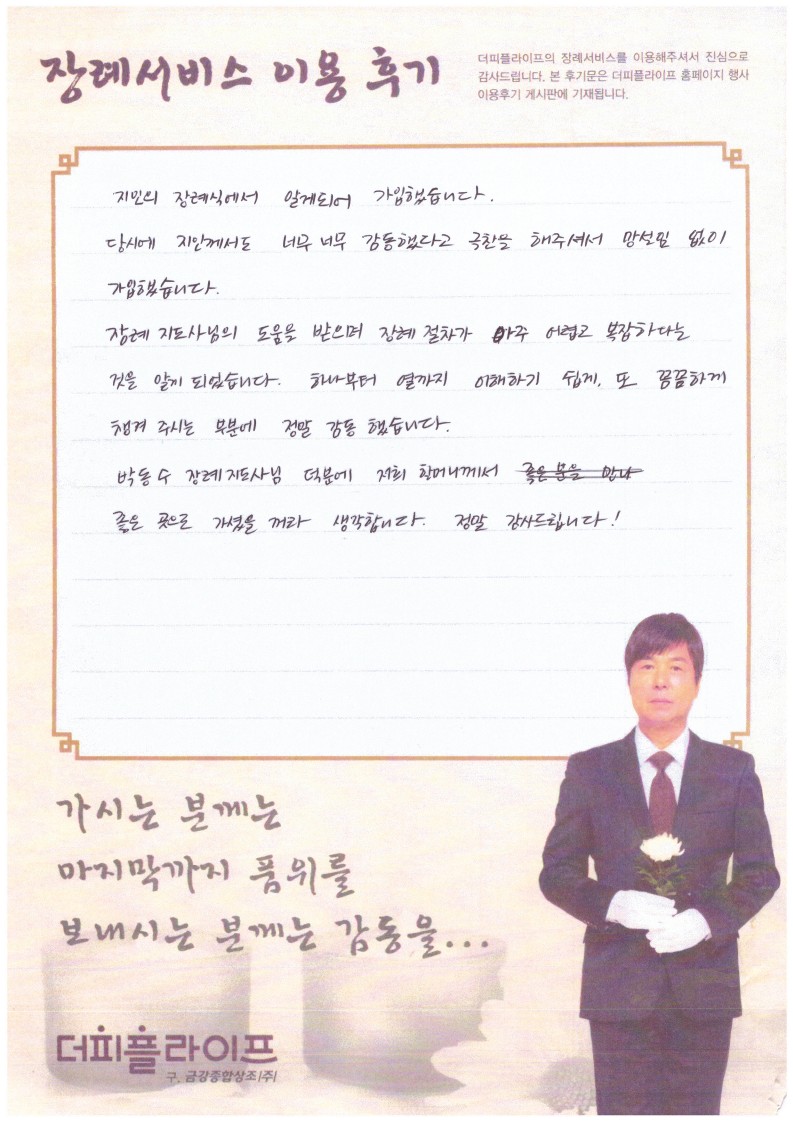 장례서비스 이용 후기
더피플라이프의 장례서비스를 이용해주셔서 진심으로
감사드립니다. 본 후기문은 더피플라이프 홈페이지 행사
이용후기 게시판에 기재됩니다.
지인의 장례식에서 알게되어 가입했습니다.
당시에 지인께서도 너무 너무 감동했다고 극찬을 해주셔서 망설임 없이
가입했습니다.
장례 지도사님의 도움을 받으며 장례 절차가 아주 어렵고 복잡하다는
것을 알게 되었습니다. 하나부터 열까지 이해하기 쉽게, 또 꼼꼼하게
챙겨 주시는 부분에 정말 감동 했습니다.
박동수 장례지도사님 덕분에 저희 할머니께서
좋은 곳으로 가셨을 꺼라 생각합니다. 정말 감사드립니다!
가시는 분께는
마지막까지 품위를
보내시는 분께는 감동을...
더피플라이프
구. 금강종합상조(주)